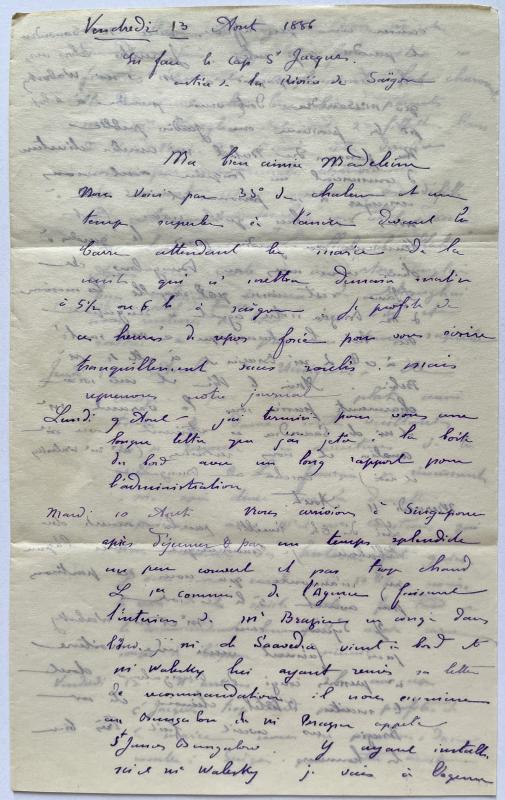 Vendredi 13 Aout 1886
En face le Cap St Jacques.
entrée de la Rivière de Saïgon
Ma bien aimée Madeleine
Nous voici par 33° de chaleur et un
temps superbe à l'ancre devant la
barre attendant la marée de la
nuit qui n' mettra demain matin
à 5½ ou 6 h à saigon je profite de
ces heures de repos forcé pour vous écrire
tranquillement sans roulis
reprenons notre journal
Lundi 9 Aout - j'ai terminé pour vous une
longue lettre que j'ai jetée à la boite
du bord avec un long rapport pour
l'administration
Mardi 10 Aout nous arrivons à Singapour
après déjeuner par un temps splendide
un peu couvert et pas trop chaud
Le 1er commis de l'Agence (faisant
l'interim de Mr Brasier en congé dans
l'Inde mr de Saavedra vient à bord et
mr Walesky lui ayant remis sa lettre
de recommandation il nous emmène
au Bungalow de mr appelé
St James Bungalow. Y ayant installé
mr Walesky je vais à l'agence